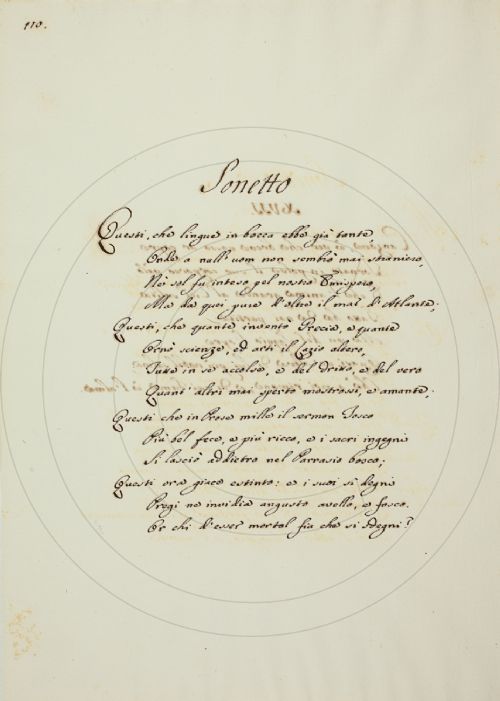 110.
Sonetto
Questi, che lingue in bocca ebbe già tante,
Onde a null'uom non sembrò mai straniero,
Nè sol fu inteso pel nostro Emispero,
Ma da quei pure d'oltre il mar d'Atlante;
Questi, che quante inventò Grecia, e quante
Ornò scienze, ed arti il Lazio altero,
Tutte in se accolse, e del dritto, e del vero
Quant' altri mai sperto mostrossi, e amante;
Questi che in Prose mille il sermon Tosco
Più bel fece, e più ricco, e i sacri ingegni
Si lasciò addietro nel Parrasio bosco;
Questi ora giace estinto: e i suoi sì degni
Pregi ne invidia angusto avello, e fosco.
Or chi d'esser mortal fia che si sdegni?